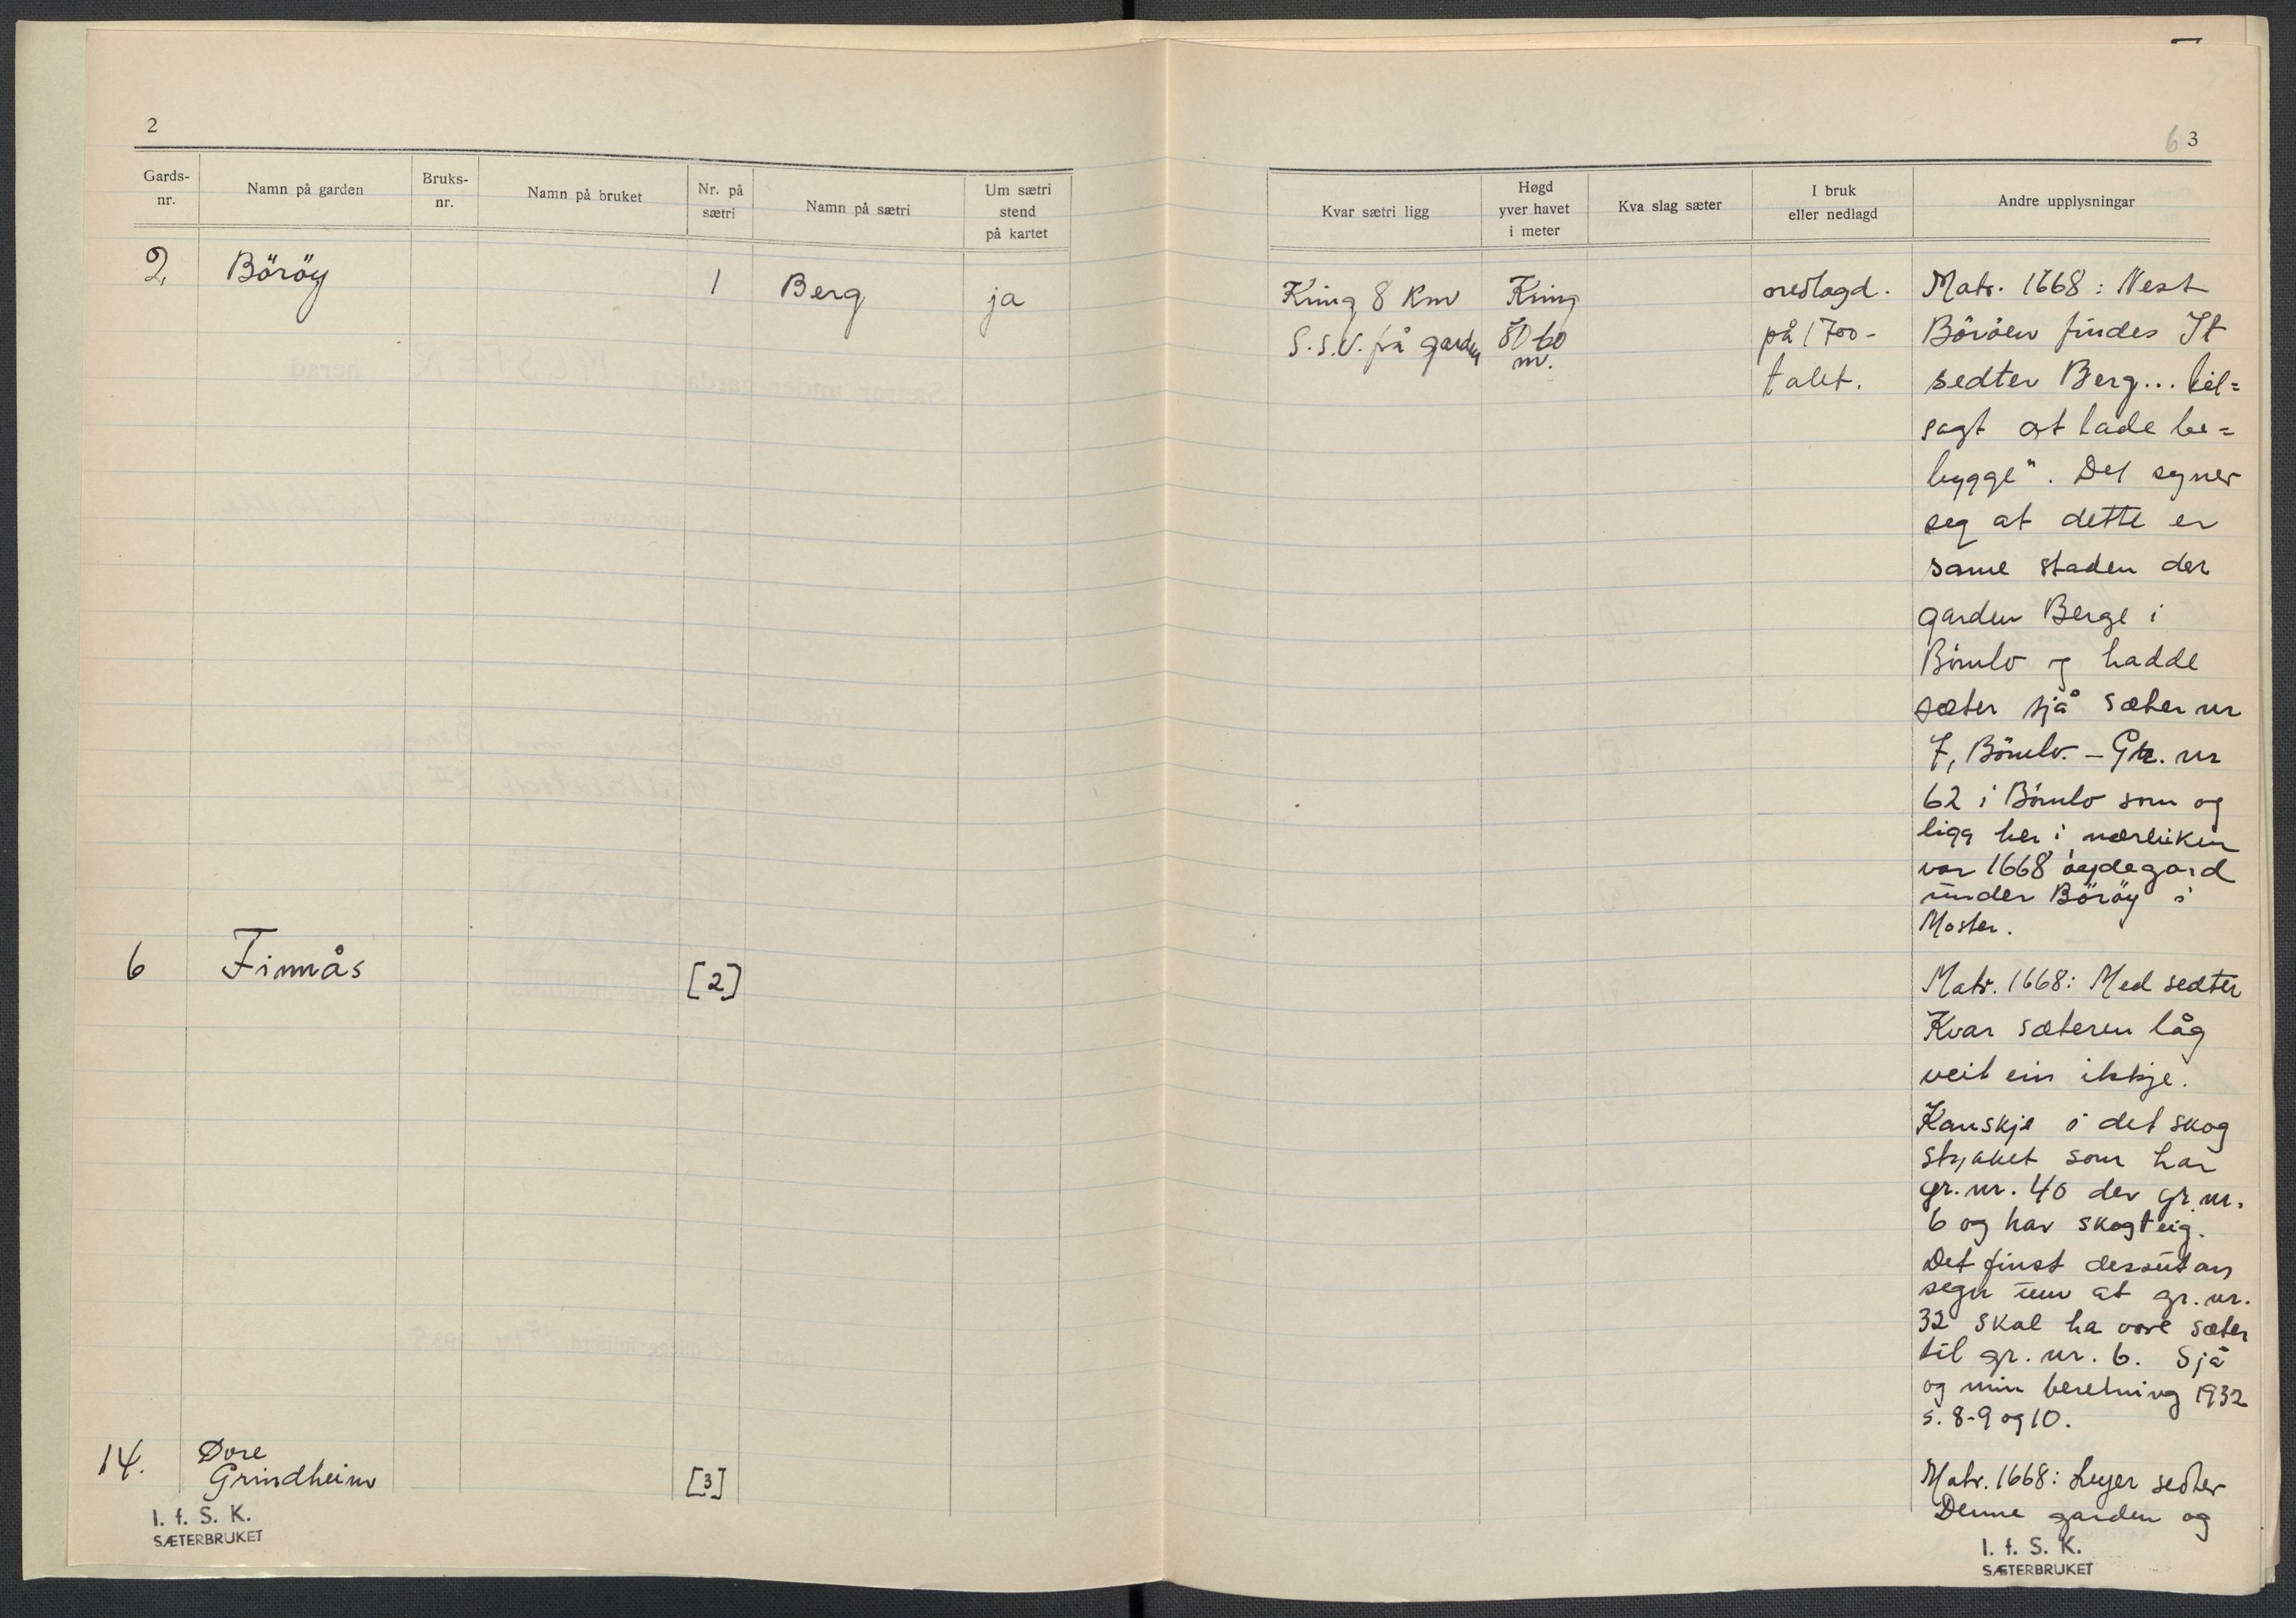 2
Gards-
nr.
Namn på garden
Bruks-
nr.
Namn på bruket
Nr. på
sætri
Namn på sætri
Um sætri
stend
på kartet
2,
Böröy
1
Berg
ja
6
Finnås
[2]
14.
Dore
Grindheim
[3]
I. f. S. K.
SÆTERBRUKET
6 3
Kvar sætri ligg
Høgd
yver havet
i meter
Kva slag sæter
I bruk
eller nedlagd
Andre upplysningar
Kring 8 Km
S.S.V. frå garden
Kring
60
m.
nedlagd.
på 1700-
talet.
Matr. 1668: Vest
Böröen findes It
sedter Berg... til=
sagt at lade be=
bygge". Det syner
seg at dette er
same staden der
garden Berge i
Bömlo og hadde
sæter sjå sæter nr
7, Bömlo. - Gr. nr
62 i Bömlo som og
ligg her i nærleiken
var 1668 øydegard
under Böröy i
Moster.
Matr. 1668: Med sedter
Kvar sæteren låg
veit ein ikkje.
Kanskje i det skog
stykket som har
gr. nr. 40 der gr. nr.
6 og har skogteig.
Det finst dessutan
segn um at gr. nr.
32 skal ha vore sæter
til gr. nr. 6. Sjå
og min beretning 1932
s. 8-9 og 10.
Matr. 1668: sedter
Denne garden og
I. f. S. K.
SÆTERBRUKET